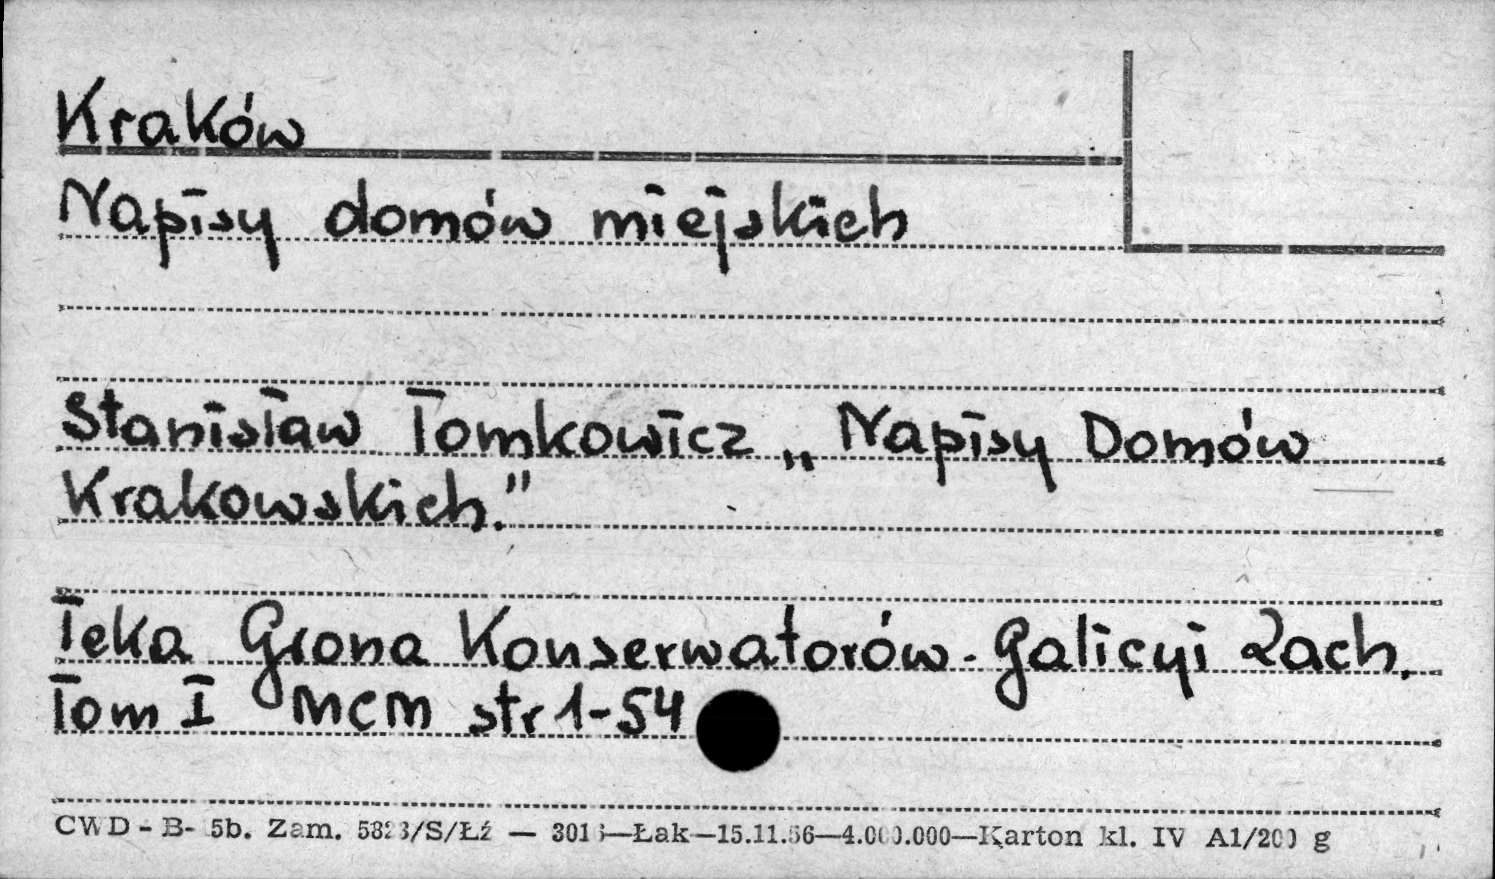 Kraków
Napisy domów miejskich
Stanisław Tomkowicz „Napisy Domów
Krakowskich."
Teka Grona Konserwatorów. Galicyi Zach.
Tom I MCM str 1-54
CWD - B- 5b. Zam. /S/Łź — —Łak—15.11.56—4.000.000—Karton kl. IV A1/200 g